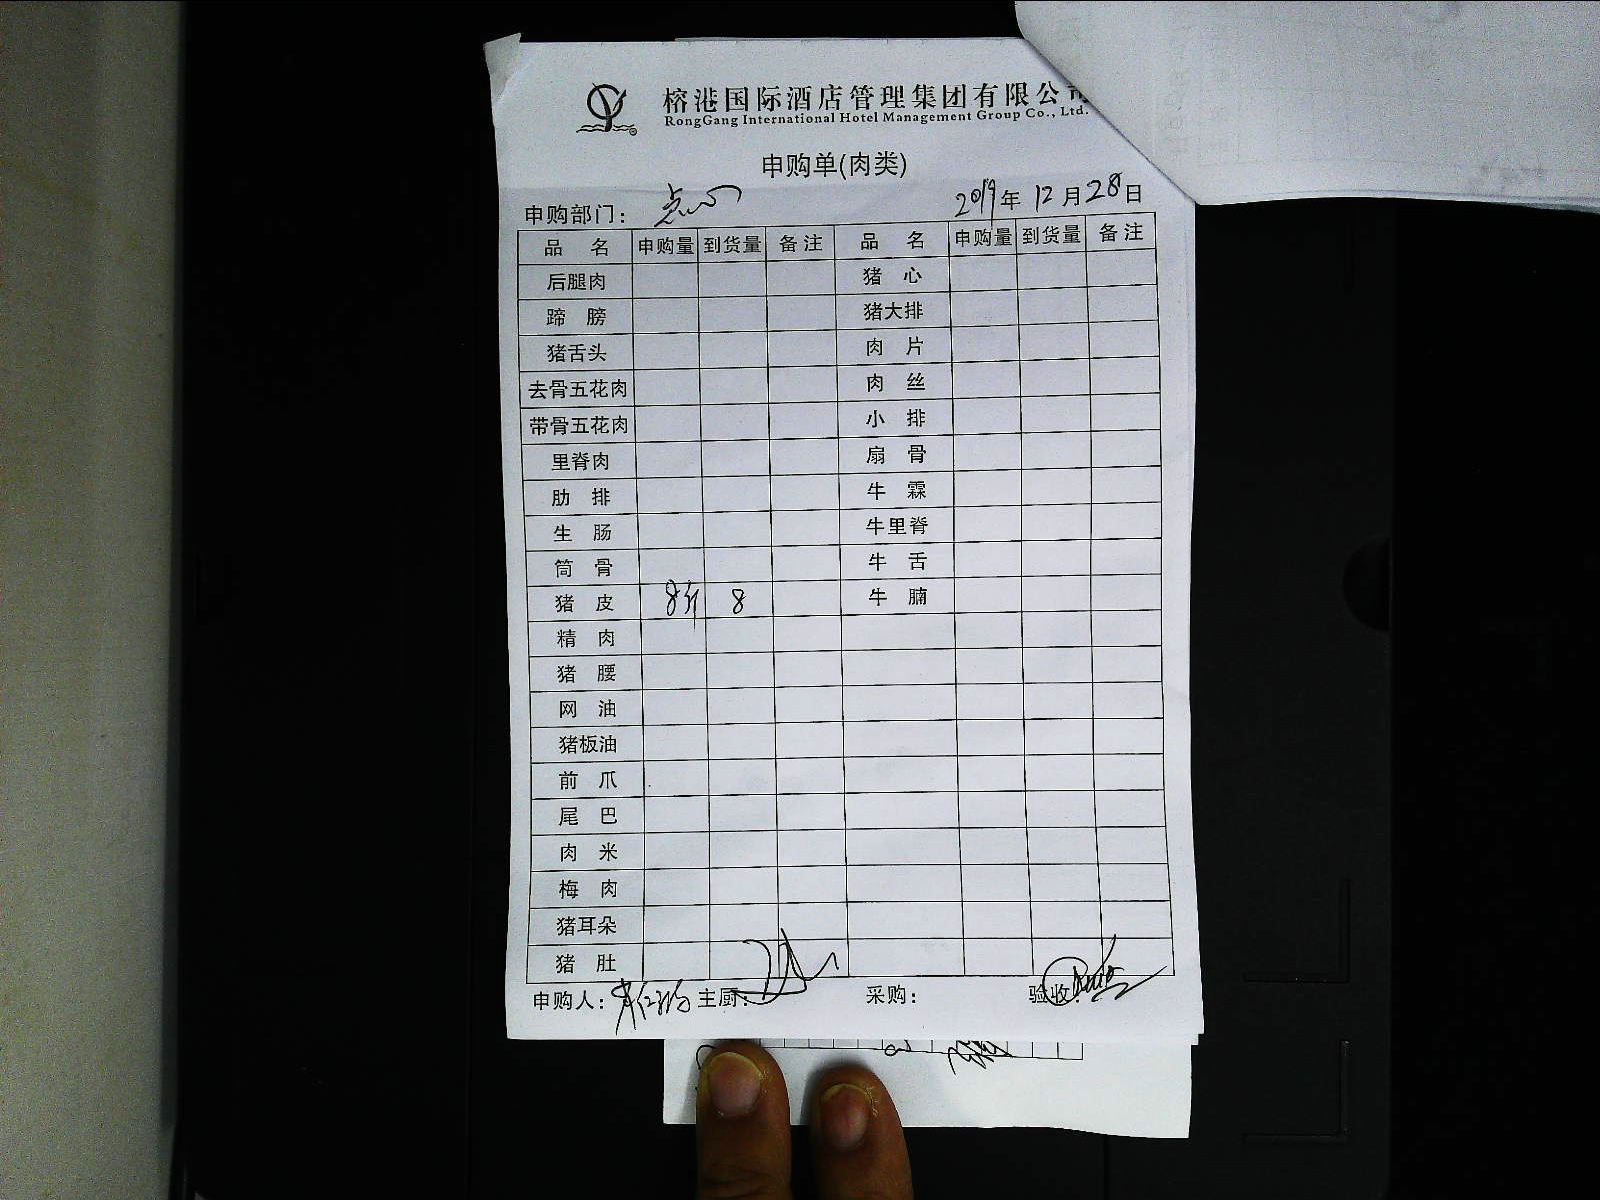 榕港国际酒店管理集团有限公司
RongGang International Hotel Management Group Co., Ltd.
申购单(肉类)
申购部门: 点心 2019年 12月 28日
品 名 申购量 到货量 备注 品 名 申购量 到货量 备注
后腿肉 猪 心
蹄 膀 猪大排
猪舌头 肉 片
去骨五花肉 肉 丝
带骨五花肉 小 排
里脊肉 扇 骨
肋 排 牛 霖
生 肠 牛里脊
筒 骨 牛 舌
猪 皮 8斤 8 牛 腩
精 肉
猪 腰
网 油
猪板油
前 爪
尾 巴
肉 米
梅 肉
猪耳朵
猪 肚
申购人: 主厨: 采购: 验收: